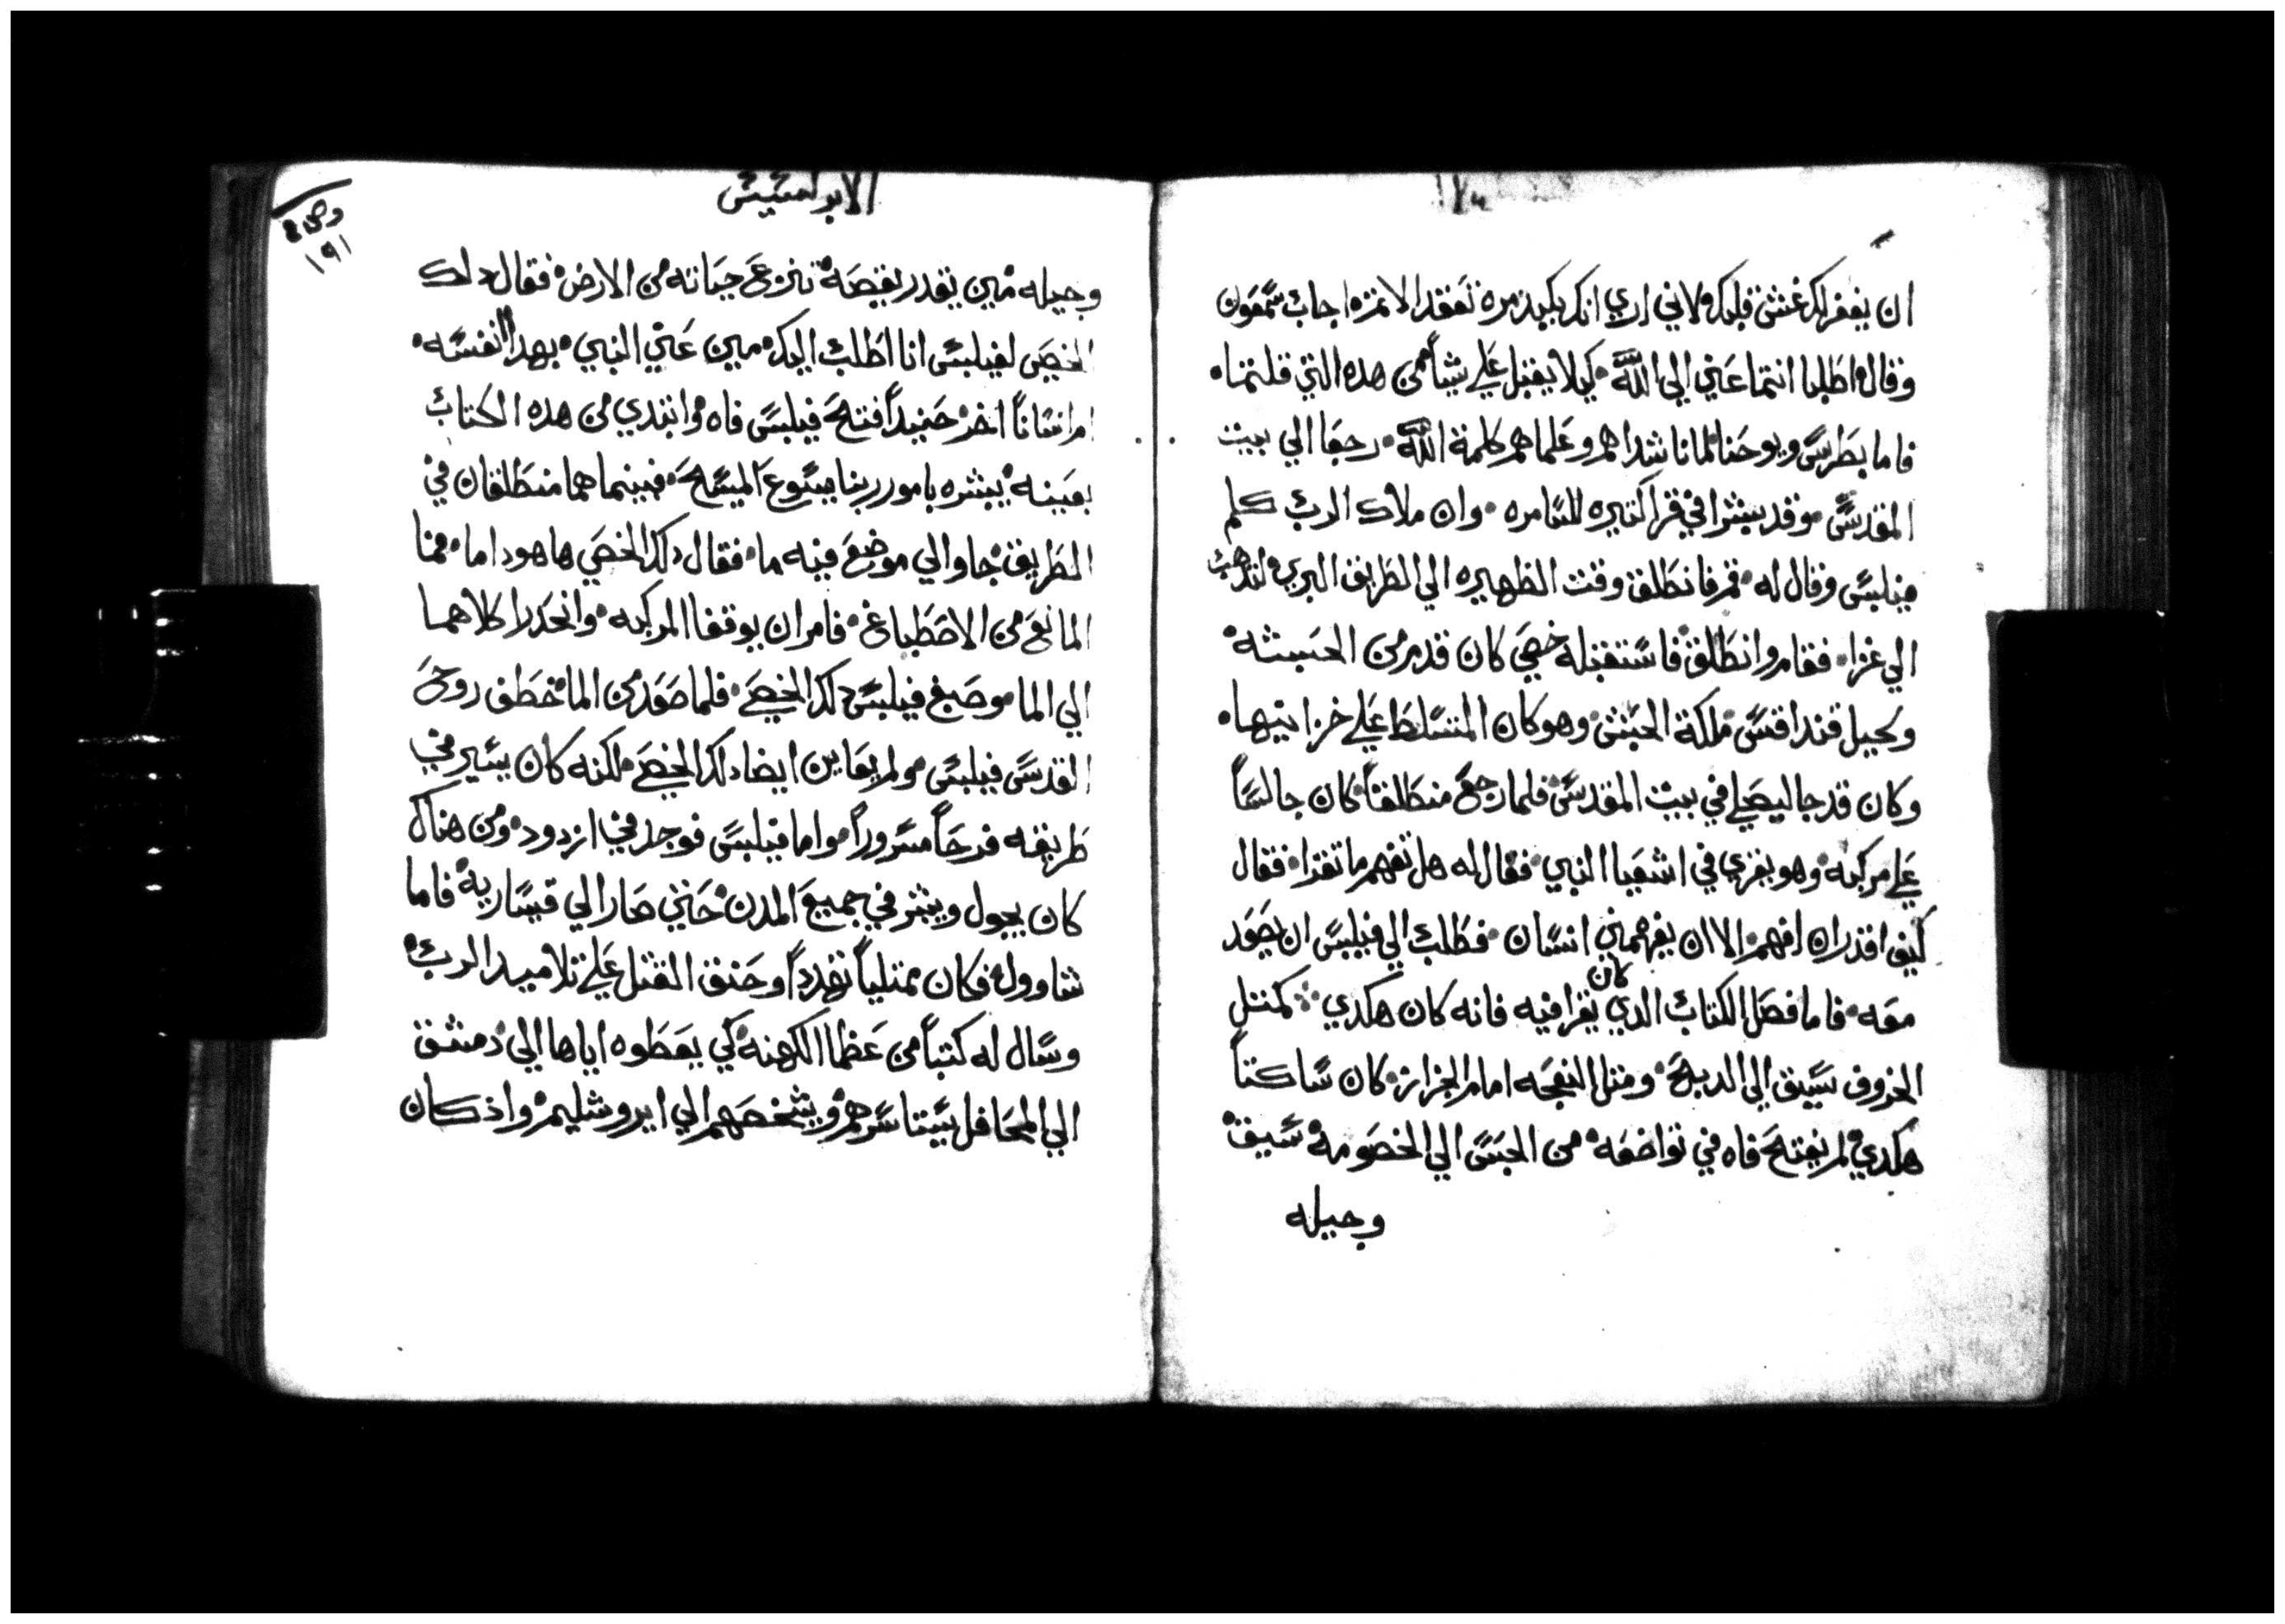 ان يغفر لك غش قلبك ولاني اري انك بكبد مرة تعقد الاثمزه اجاب سمعون
وقال اطلبا انتما عني الي الله كيلا يقبل علي شياً من هده التي قلتما
فاما بطرس ويوحنا لما ناشداهم وعلماهم كلمة الله رجعا الي بيت
المقدس وقد بشرا في قرا كتيره للسامره وان ملاك الرب كلم
فيلبس وقال له قم فانطلق وقت الظهيره الي الطريق البري لتدهب
الي غزا فقام وانطلق فاستقبله خصي كان قدم من الحبشه
وكيل قنداقس ملكة الحبش وهو كان المتسلط علي خزاينها
وكان قد جا ليصلي في بيت المقدس فلما رجع منطلقاً كان جالساً
علي مركبه وهو يقري في اشعيا النبي فقال له هل تفهم ما تقرا فقال
كيف اقدر ان افهم الا ان يفهمني انسان فطلب الي فيلبس ان يصعد
معه فاما فصل الكتاب الدي كان يقرا فيه فانه كان هكدي كمتل
الخروف سيق الي الدبح ومتل النعجه امام الجزاز كان ساكتاً
هكدي لم يفتح فاه في تواضعه من الحبس الي الخصومة سيق
وجيله
الابركسيس
١٩١
وجيله مين يقدر يقصه تنزع حياته من الارض فقال دلك
الخصي لفيلبس انا اطلب اليك مين عني النبي بهدا لنفسه
ام انساناً اخر حينيداً فتح فيلبس فاه وابتدي من هده الكتاب
بعينه يبشره بامور ربنا يسوع المسيح فبينما هما منطلقان في
الطريق جاوا الي موضع فيه ما فقال دلك الخصي ها هودا ما فما
المانع من الاصطباغ فامر ان يوقفا المركبه وانحدرا كلاهما
الي الما وصبغ فيلبس دلك الخصي فلما صعد من الما خطف روح
القدس فيلبس ولم يعاين ايضا دلك الخصي لكنه كان يسير في
طريقه فرحاً مسروراً واما فيلبس فوجد في ازدود ومن هناك
كان يجول ويبشر في جميع المدن حتي صار الي قيسارية فاما
شاوول فكان ممتلياً تهدداً وحنق القتل علي تلاميد الرب
وسال له كتباً من عظما الكهنة كي يعطوه اياها الي دمشق
الي المحافل يستاسرهم ويشخصهم الي ايروشليم واذ كان